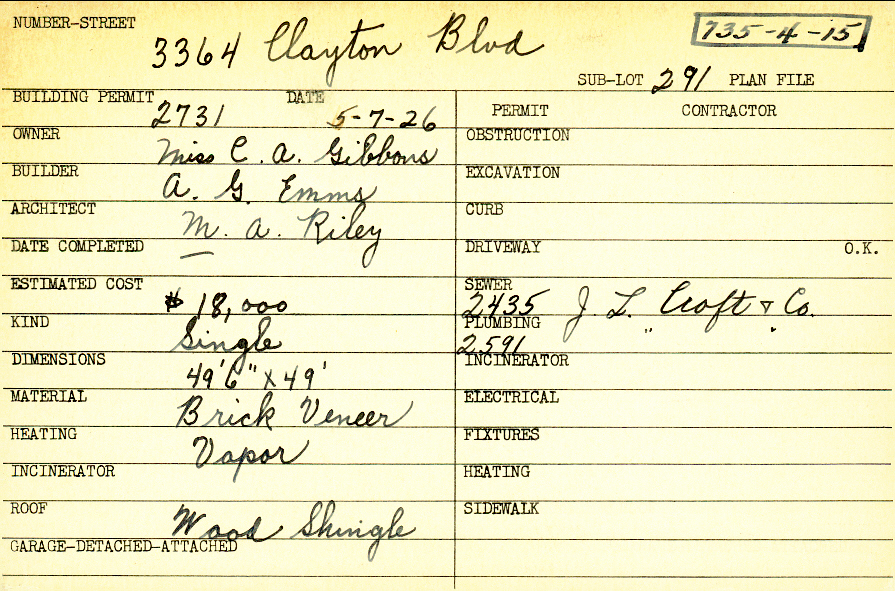 NUMBER-STREET 3364 Clayton Blvd 735-4-15
SUB-LOT 291 PLAN FILE
BUILDING PERMIT 2731 DATE 5-7-26
OWNER Miss C. A. Gibbons
BUILDER A. G. Emms
ARCHITECT M. A. Riley
DATE COMPLETED —
ESTIMATED COST $ 18,000
KIND Single
DIMENSIONS 49'6" X 49'
MATERIAL Brick Veneer
HEATING Vapor
INCINERATOR
ROOF Wood Shingle
GARAGE-DETACHED-ATTACHED
PERMIT CONTRACTOR
OBSTRUCTION
EXCAVATION
CURB
DRIVEWAY O.K.
SEWER 2435 J. L. Croft & Co.
PLUMBING 2591 " "
INCINERATOR
ELECTRICAL
FIXTURES
HEATING
SIDEWALK